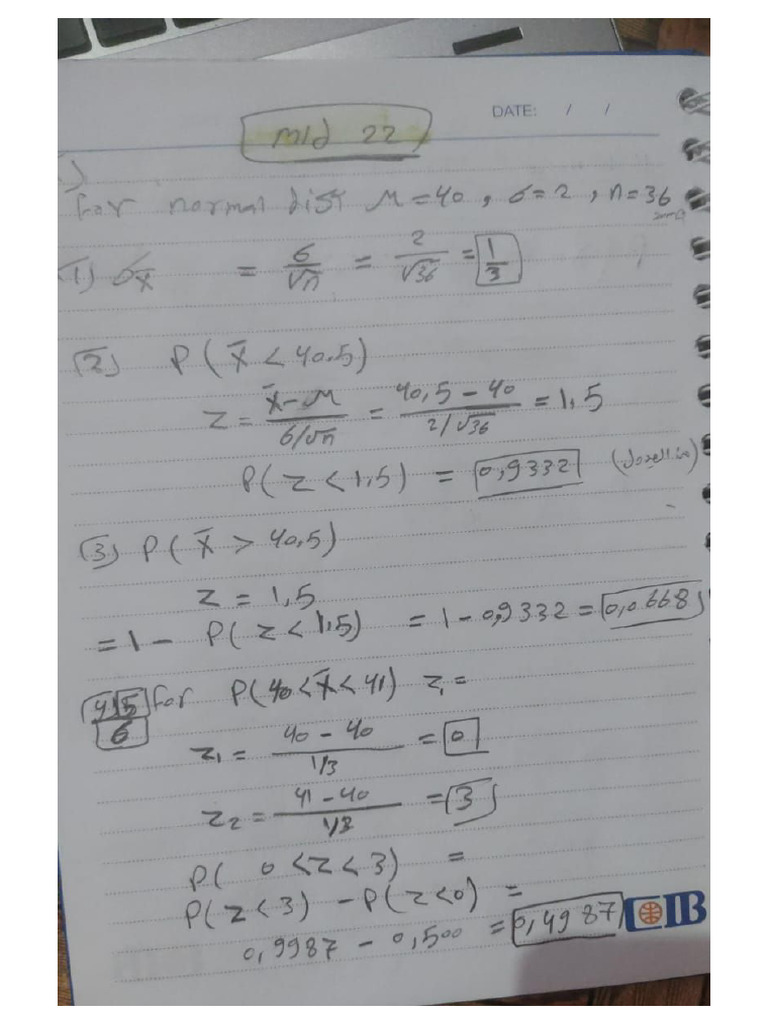 DATE: / /
mid 22
For normal dist M=40, σ=2, n=36
(1) σx̄ = σ/√n = 2/√36 = 1/3
(2) P(x̄ < 40.5)
Z = x̄-M/σ/√n = 40,5 - 40/2/√36 = 1,5
P(Z < 1,5) = 0,9332
(3) P(x̄ > 40,5)
Z = 1,5
= 1 - P(Z < 1,5) = 1 - 0,9332 = 0,0668
4,5 For P(40 < x̄ < 41) Z1 =
6
Z1 = 40 - 40/1/3 = 0
Z2 = 41 - 40/1/3 = 3
P( 0 < Z < 3) =
P(Z < 3) - P(Z < 0) =
0,9987 - 0,500 = 0,4987
CIB